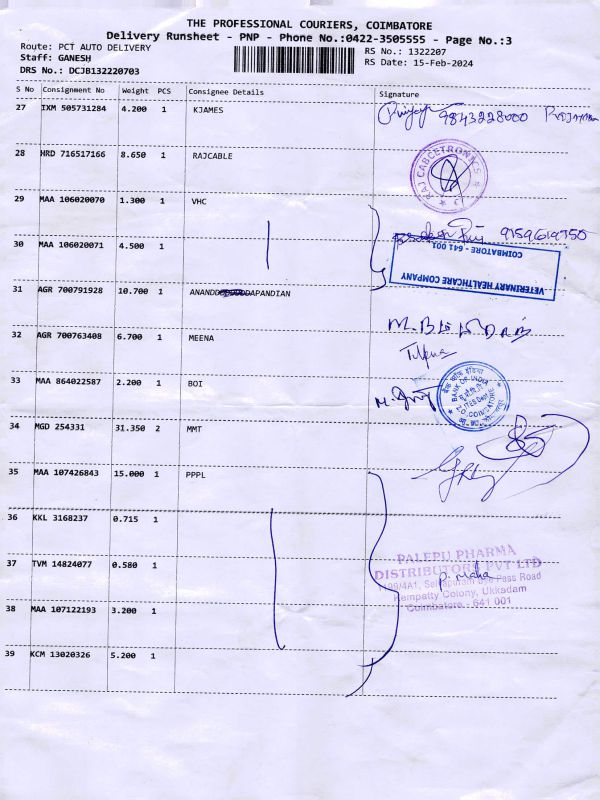 THE PROFESSIONAL COURIERS, COIMBATORE
Delivery Runsheet - PNP - Phone No.:0422-3505555 - Page No.:3
Route: PCT AUTO DELIVERY
RS No.: 1322207
Staff: GANESH
RS Date: 15-Feb-2024
DRS No.: DCJB132220703
S No Consignment No Weight PCS Consignee Details Signature
27 IXM 505731284 4.200 1 KJAMES 9843228000
28 HRD 716517166 8.650 1 RAJCABLE
RAJ CABCETRONICS
29 MAA 106020070 1.300 1 VHC
9159619750
30 MAA 106020071 4.500 1
VETERINARY HEALTHCARE COMPANY
COIMBATORE - 641 001
31 AGR 700791928 10.700 1 ANANDD APANDIAN
32 AGR 700763408 6.700 1 MEENA
33 MAA 864022587 2.200 1 BOI
बैंक ऑफ इंडिया
BANK OF INDIA
COIMBATORE
34 MGD 254331 31.350 2 MMT
35 MAA 107426843 15.000 1 PPPL
36 KKL 3168237 0.715 1
PALEPU PHARMA
DISTRIBUTORS PVT LTD
37 TVM 14824077 0.580 1 P. Maha
Bye Pass Road
Kempatty Colony, Ukkadam
Coimbatore - 641 001
38 MAA 107122193 3.200 1
39 KCM 13020326 5.200 1